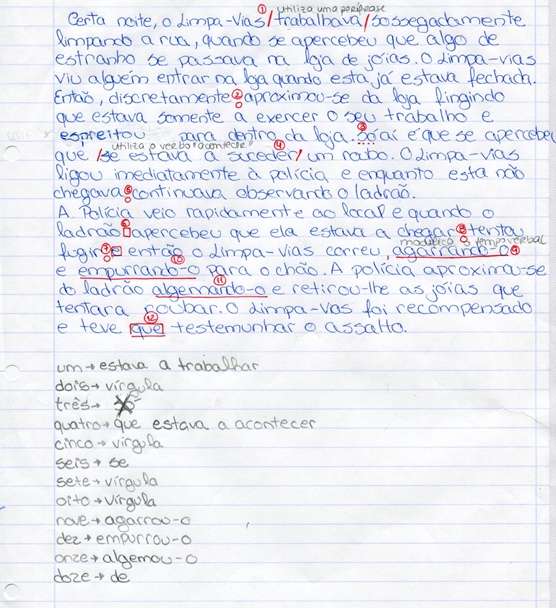 ① utiliza uma perífrase
Certa noite, o Limpa-Vias /trabalhava/ sossegadamente
limpando a rua, quando se apercebeu que algo de
estranho se passava na loja de jóias. O Limpa-vias
viu alguém entrar na loja quando esta já estava fechada.
Então, discretamente ② aproximou-se da loja fingindo
que estava somente a exercer o seu trabalho e
espreitou para dentro da loja. ③ Só aí é que se apercebeu
utiliza o verbo "acontecer" ④
que /se estava a suceder/ um roubo. O Limpa-vias
ligou imediatamente à polícia e enquanto esta não
chegava ⑤ continuava observando o ladrão.
A Polícia veio rapidamente ao local e quando o
ladrão ⑥ apercebeu que ela estava a chegar ⑧ tentou
modifica o tempo verbal
fugir ⑦ e então o Limpa-Vias correu, agarrando-o ⑨
⑩
e empurrando-o para o chão. A polícia aproximou-se
⑪
do ladrão algemando-o e retirou-lhe as jóias que
tentara roubar. O Limpa-Vias foi recompensado
⑫
e teve que testemunhar o assalto.
um → estava a trabalhar
dois → vírgula
três →
quatro → que estava a acontecer
cinco → vírgula
seis → se
sete → vírgula
oito → vírgula
nove → agarrou-o
dez → empurrou-o
onze → algemou-o
doze → de